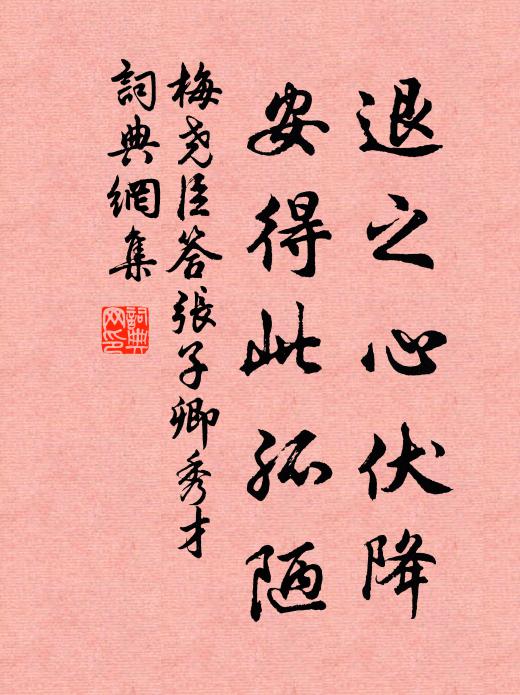 退之心伏降
安得此孤陋
梅尧臣答張子卿秀才
詞典網集
詞典網印